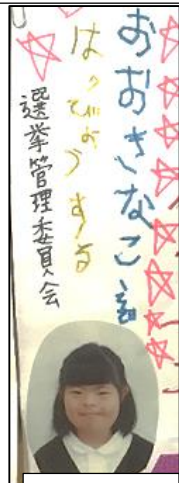 おおきなこえ
はっぴょうする
選挙管理委員会